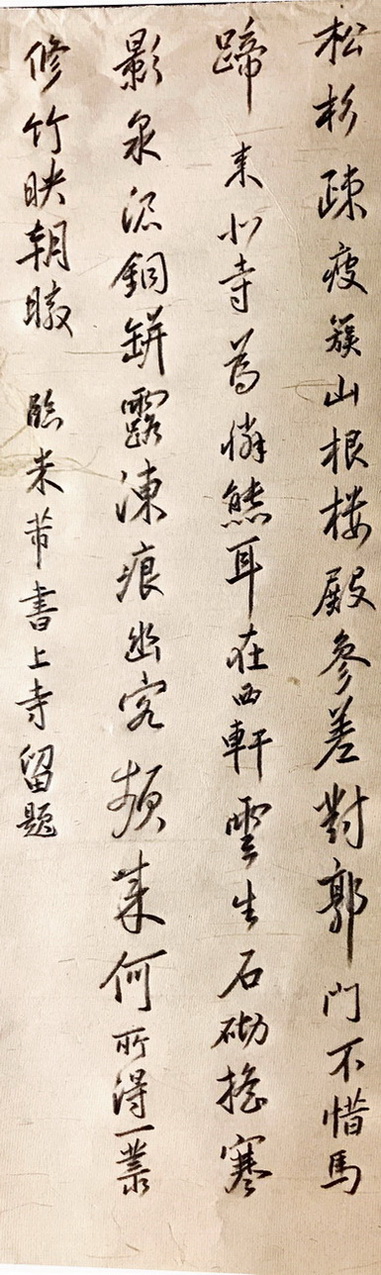 松杉疎瘦簇山根楼殿參差對郭門不惜馬
蹄来小寺為憐熊耳在西軒雲生石砌搖寒
影泉沉銅缾露凍痕幽客頻来何所得一叢
修竹映朝暾 臨米芾書上寺留題